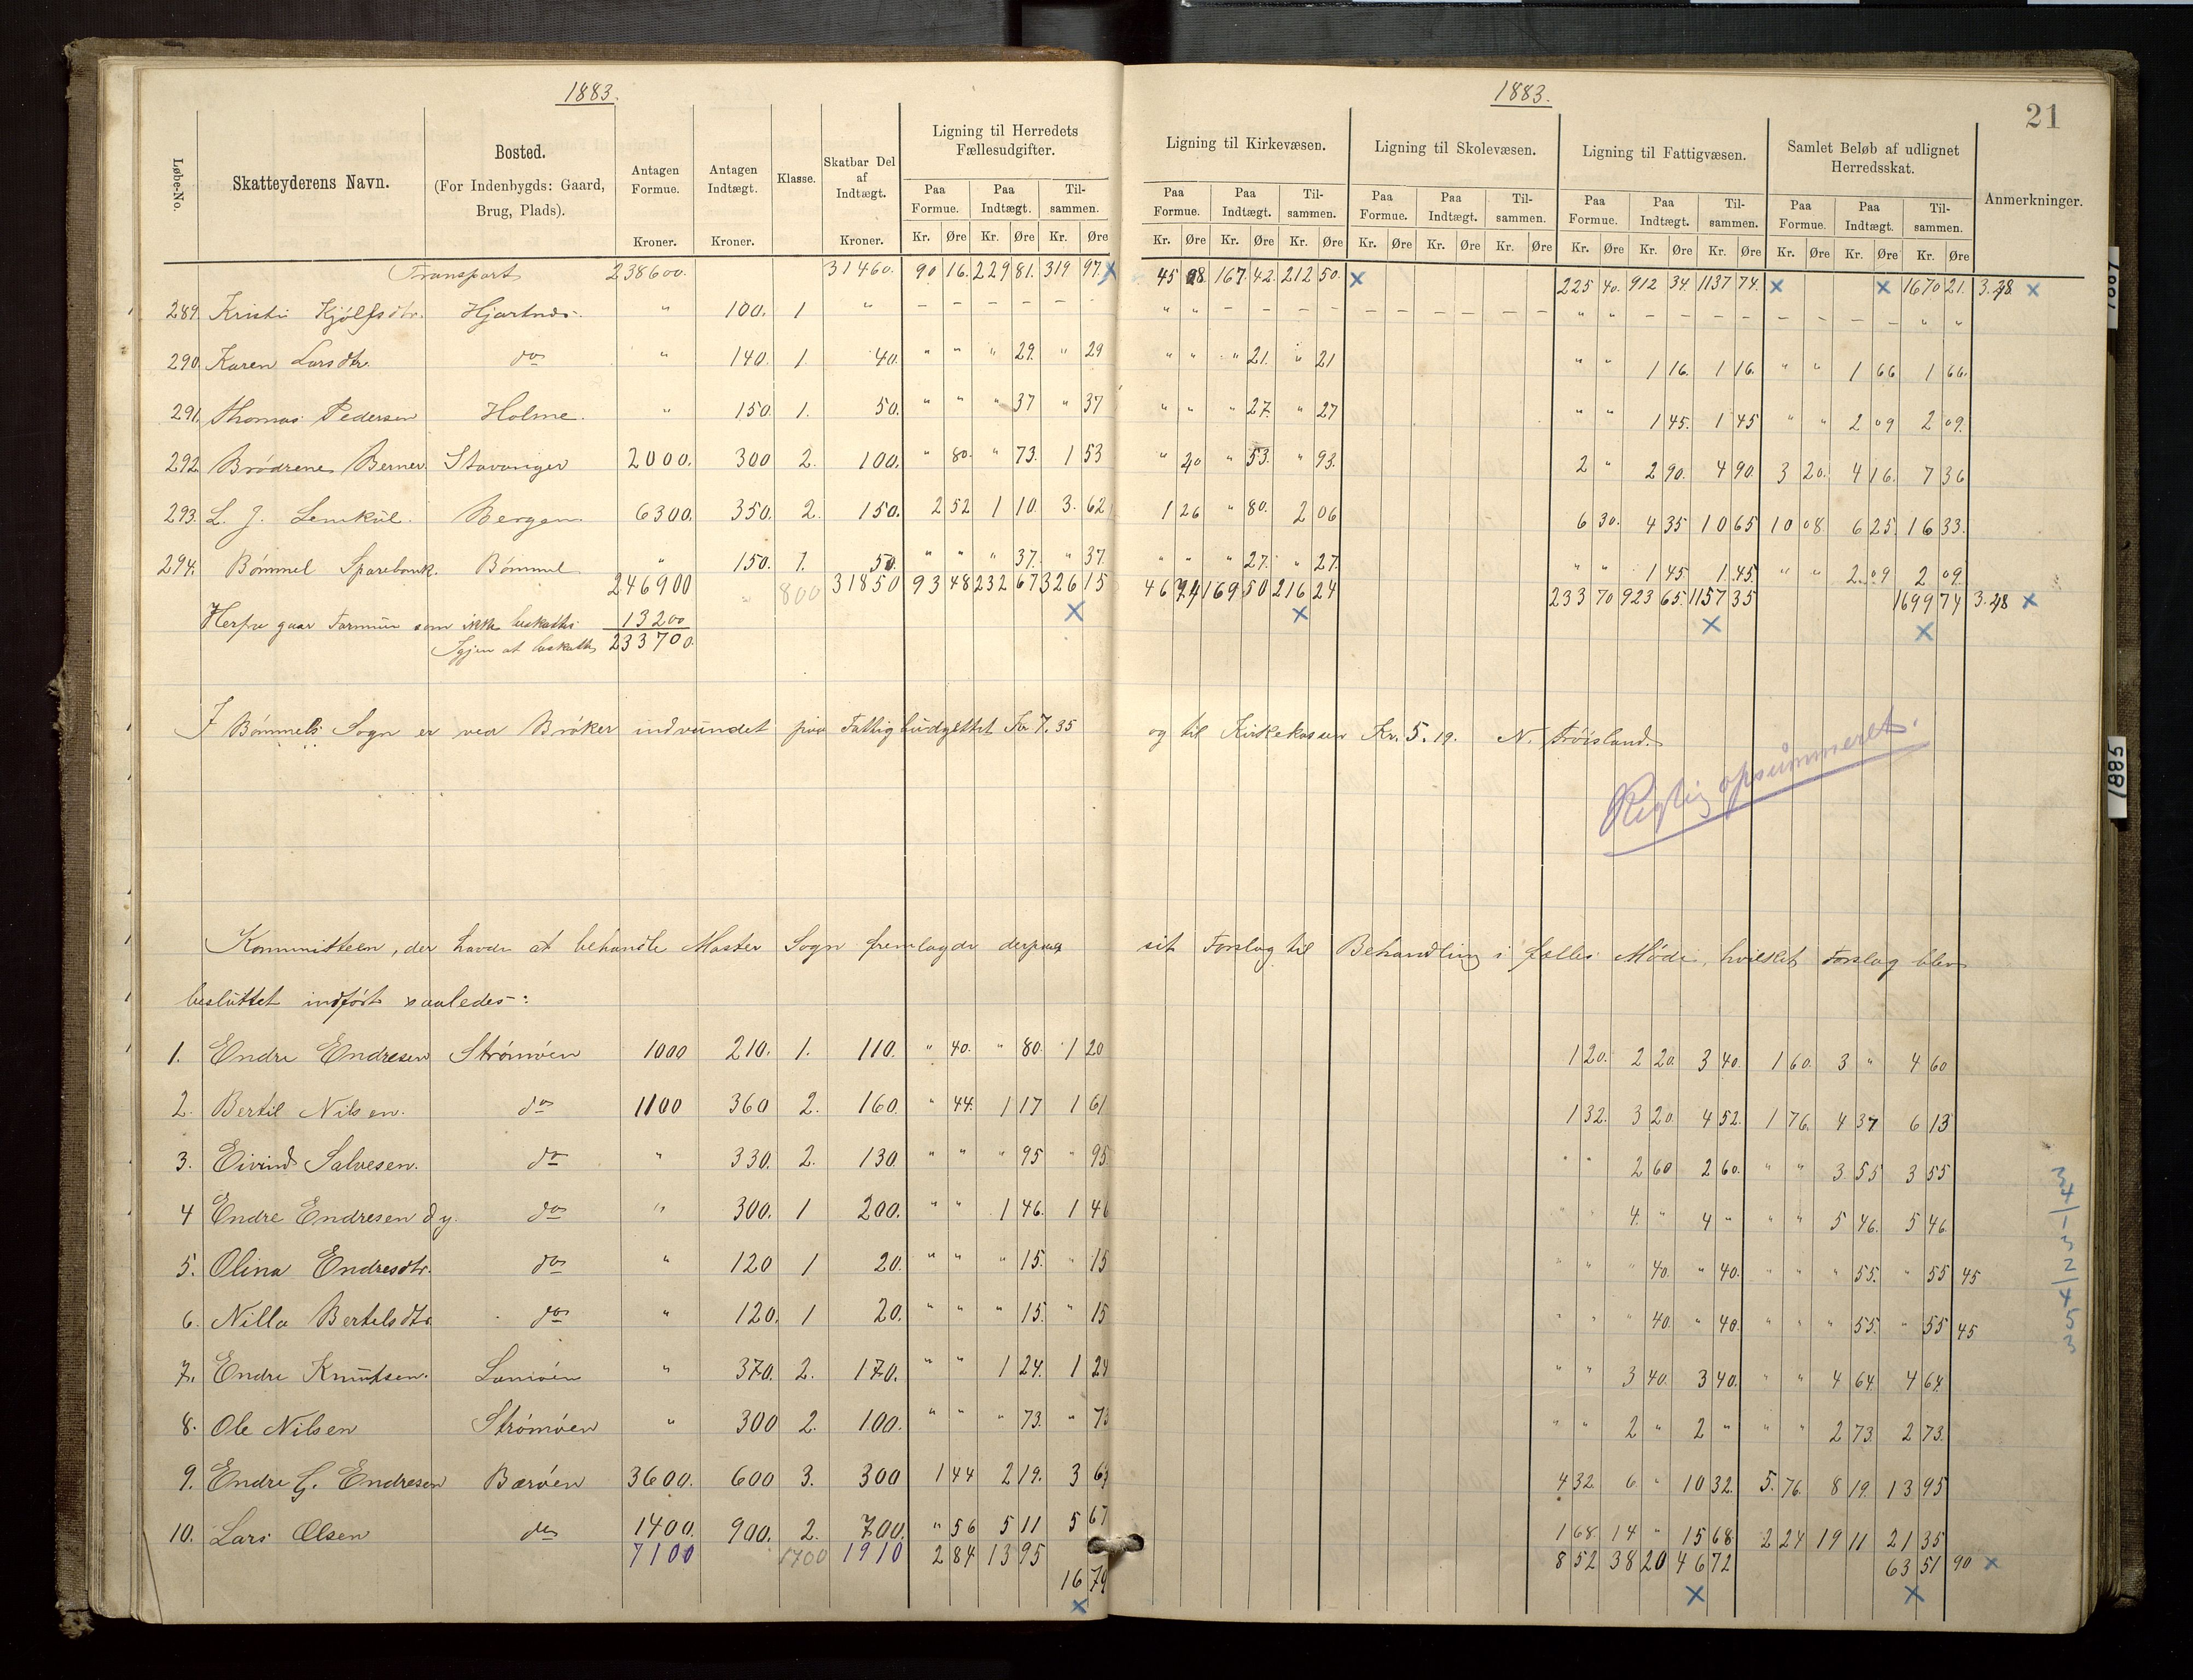 1883.
1883.
21
Løbe-No. Skatteyderens Navn. Bosted. (For Indenbygds: Gaard, Brug, Plads). Antagen Formue. Kroner. Antagen Indtægt. Kroner. Klasse. Skatbar Del af Indtægt. Kroner. Ligning til Herredets Fællesudgifter. Ligning til Kirkevæsen. Ligning til Skolevæsen. Ligning til Fattigvæsen. Samlet Beløb af udlignet Herredsskat. Anmerkninger.
Paa Formue. Paa Indtægt. Til-sammen. Paa Formue. Paa Indtægt. Til-sammen. Paa Formue. Paa Indtægt. Til-sammen. Paa Formue. Paa Indtægt. Til-sammen. Paa Formue. Paa Indtægt. Til-sammen.
Kr. Øre Kr. Øre Kr. Øre Kr. Øre Kr. Øre Kr. Øre Kr. Øre Kr. Øre Kr. Øre Kr. Øre Kr. Øre Kr. Øre Kr. Øre Kr. Øre Kr. Øre
Transport 238600. 31460. 90 16. 229 81. 319 97. x 45 08 167 42. 212 50. x 225 40. 912 34. 1137 74. x x 1670 21. x
289. Kristi Kjólfsdtr. Hjartnes. " 100. 1 " – – – – – – " " – – – – – – – – – – " " – – – – – – – – " "
290. Karen Larsdtr. do " 140. 1. 40. " " " 29. " 29 " " " 21. " 21 " " 1 16. 1 16. " " 1 66 1 66.
291. Thomas Pedersen Holme. " 150. 1. 50. " " " 37 " 37 " " " 27. " 27 " " 1 45. 1 45 " " 2 09 2 09.
292. Brødrene Berner. Stavanger 2000. 300 2. 100. " 80. " 73. 1 53 " 40 " 53. " 93. 2 " 2 90. 4 90. 3 20. 4 16. 7 36
293. L. J. Lemkül. Bergen 6300. 350. 2. 150. 2 52 1 10. 3. 62 1 26 " 80. 2 06 6 30. 4 35 10 65 10 08. 6 25. 16 33.
294. Bømmel Sparebank. Bømmel " 150. 1. 50. " " " 37. " 37. " " " 27. " 27. " " 1 45 1. 45. " " 2. 09 2 09.
246900 " 800 31850 93 48 232 67 326 15 46 74 169 50 216 24 233 70 923 65. 1157 35 1699 74 x
Herfra gaar Formue som ikke beskattes 13200 x x x x
Igjen at beskatte 233700.
I Bømmels Sogn er ved Brøker indvundet paa Fattigbudgettet Kr 7.35 og til Kirkekassen Kr. 5.19. N.
Rigtig opsummeret.
Kommitteen, der havde at behandle Moster Sogn fremlagde derpaa sit Forslag til Behandling i fælles Møde, hvilket Forslag blev
besluttet indført saaledes:
1. Endre Endresen Strømøen 1000 210. 1. 110. " 40. " 80. 1 20 1 20. 2 20. 3 40. 1 60. 3 " 4 60
2. Bertil Nilsen. do 1100 360 2. 160. " 44. 1 17 1 61 1 32. 3 20. 4 52. 1 76. 4 37 6 13
3. Eivind Salvesen. do " 330. 2. 130. " " " 95 " 95. " " 2 60 2 60. " " 3 55 3 55
4 Endre Endresen d.y. do " 300. 1 200. " " 1 46. 1 46 " " 4. " 4 " " " 5 46. 5 46.
5. Olina Endresdtr. do " 120 1 20. " " " 15. " 15 " " " 40. " 40. " " " 55. " 55 45
6. Nilla Bertelsdtr. do " 120. 1 20. " " " 15. " 15 " " " 40. " 40. " " " 55. " 55 45
7. Endre Knutsen. " 370. 2. 170. " " 1 24. 1 24 " " 3 40. 3 40. " " 4 64. 4 64.
8. Ole Nilsen Strømøen " 300 2. 100. " " " 73. " 73 " " 2 " 2 " " " 2 73. 2 73.
9. Endre G. Endresen Barøen 3600. 600 3. 300 1 44 2 19. 3 63 4 32. 6 " 10 32. 5. 76. 8 19. 13 95
10. Lars Olsen do 1400. 900. 2. 700. " 56 5 11 5 67 1 68. 14 " 15 68. 2 24 19 11 21 35
7100 1700 1910 2 84 13 95 8 52 38 20 46 72 63 51 90 x
16 79 x x
x
1885